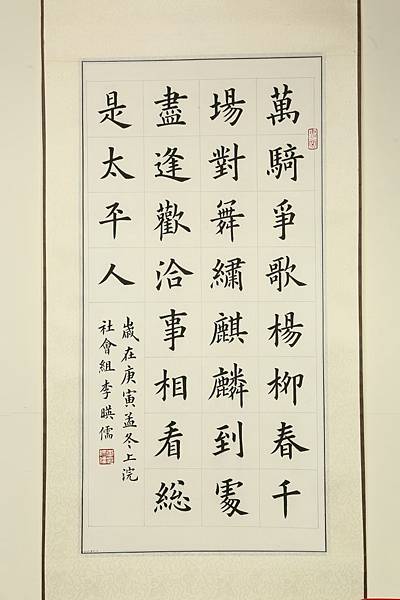 萬騎爭歌楊柳春千
場對舞繡麒麟到處
盡逢歡洽事相看總
是太平人
歲在庚寅孟冬上浣
社會組李暎儒